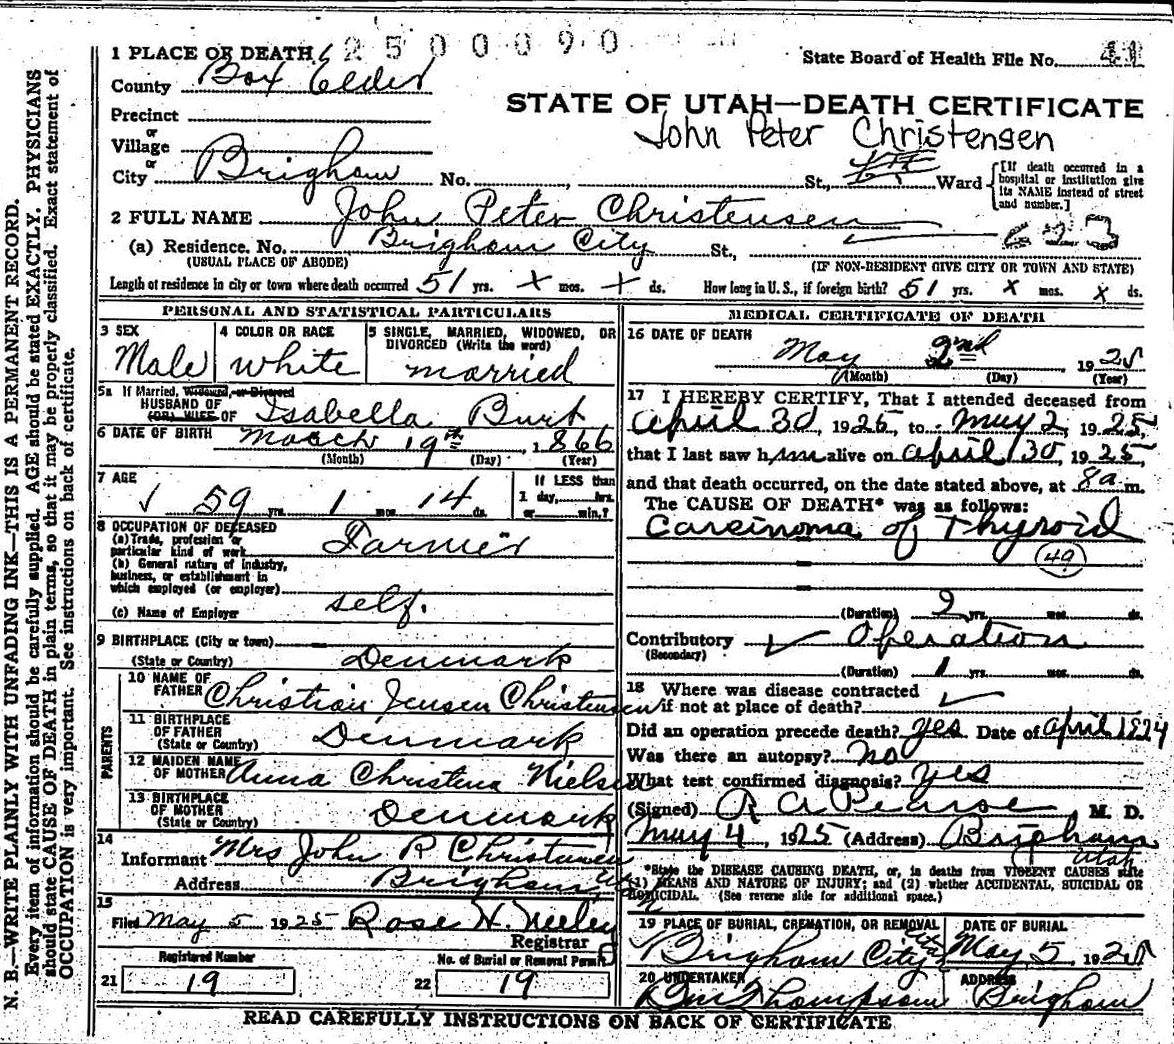 N. B.—WRITE PLAINLY WITH UNFADING INK—THIS IS A PERMANENT RECORD.
Every item of information should be carefully supplied. AGE should be stated EXACTLY. PHYSICIANS
should state CAUSE OF DEATH in plain terms, so that it may be properly classified. Exact statement of
OCCUPATION is very important. See instructions on back of certificate.
2500090
1 PLACE OF DEATH
State Board of Health File No. 41
County Box Elder
STATE OF UTAH—DEATH CERTIFICATE
John Peter Christensen
Precinct
or
Village
or
City Brigham No. , St., Ward
[If death occurred in a
hospital or institution give
its NAME instead of street
and number.]
2 FULL NAME John Peter Christensen
(a) Residence. No. Brigham City St.,
(USUAL PLACE OF ABODE)
(IF NON-RESIDENT GIVE CITY OR TOWN AND STATE)
Length of residence in city or town where death occurred 51 yrs. x mos. x ds. How long in U.S., if foreign birth? 51 yrs. x mos. x ds.
PERSONAL AND STATISTICAL PARTICULARS
3 SEX
Male
4 COLOR OR RACE
white
5 SINGLE, MARRIED, WIDOWED, OR
DIVORCED (Write the word)
married
5a If Married, Widowed, or Divorced
HUSBAND OF
(OR) WIFE OF Isabella Burt
6 DATE OF BIRTH March 19th 1866
(Month) (Day) (Year)
7 AGE
59 yrs. 1 mos. 14 ds.
If LESS than
1 day, hrs.
or min.?
8 OCCUPATION OF DECEASED
(a) Trade, profession or
particular kind of work Farmer
(b) General nature of industry,
business, or establishment in
which employed (or employer)
(c) Name of Employer self.
9 BIRTHPLACE (City or town)
(State or Country) Denmark
PARENTS
10 NAME OF
FATHER Christian Jensen Christensen
11 BIRTHPLACE
OF FATHER
(State or Country) Denmark
12 MAIDEN NAME
OF MOTHER Anna Christina Nielsen
13 BIRTHPLACE
OF MOTHER
(State or Country) Denmark
14
Informant Mrs John P Christensen
Address Brigham
15
Filed May 5 1925 Rose H. Neeley
Registrar
Registered Number
21 19
No. of Burial or Removal Permit
22 19
MEDICAL CERTIFICATE OF DEATH
16 DATE OF DEATH
May 2nd 1925
(Month) (Day) (Year)
17 I HEREBY CERTIFY, That I attended deceased from
April 30, 1925, to May 2, 1925,
that I last saw him alive on April 30, 1925,
and that death occurred, on the date stated above, at 8 a m.
The CAUSE OF DEATH* was as follows:
Carcinoma of Thyroid
49
(Duration) 2 yrs. mos. ds.
Contributory Operation
(Secondary)
(Duration) 1 yrs. mos. ds.
18 Where was disease contracted
if not at place of death?
Did an operation precede death? yes Date of April 1924
Was there an autopsy? no
What test confirmed diagnosis? yes
(Signed) R A Pearse M. D.
May 4, 1925 (Address) Brigham
Utah
*State the DISEASE CAUSING DEATH, or, in deaths from VIOLENT CAUSES state
(1) MEANS AND NATURE OF INJURY; and (2) whether ACCIDENTAL, SUICIDAL OR
HOMICIDAL. (See reverse side for additional space.)
19 PLACE OF BURIAL, CREMATION, OR REMOVAL
Brigham City Utah
DATE OF BURIAL
May 5 1925
20 UNDERTAKER
Thompson
ADDRESS
Brigham
READ CAREFULLY INSTRUCTIONS ON BACK OF CERTIFICATE